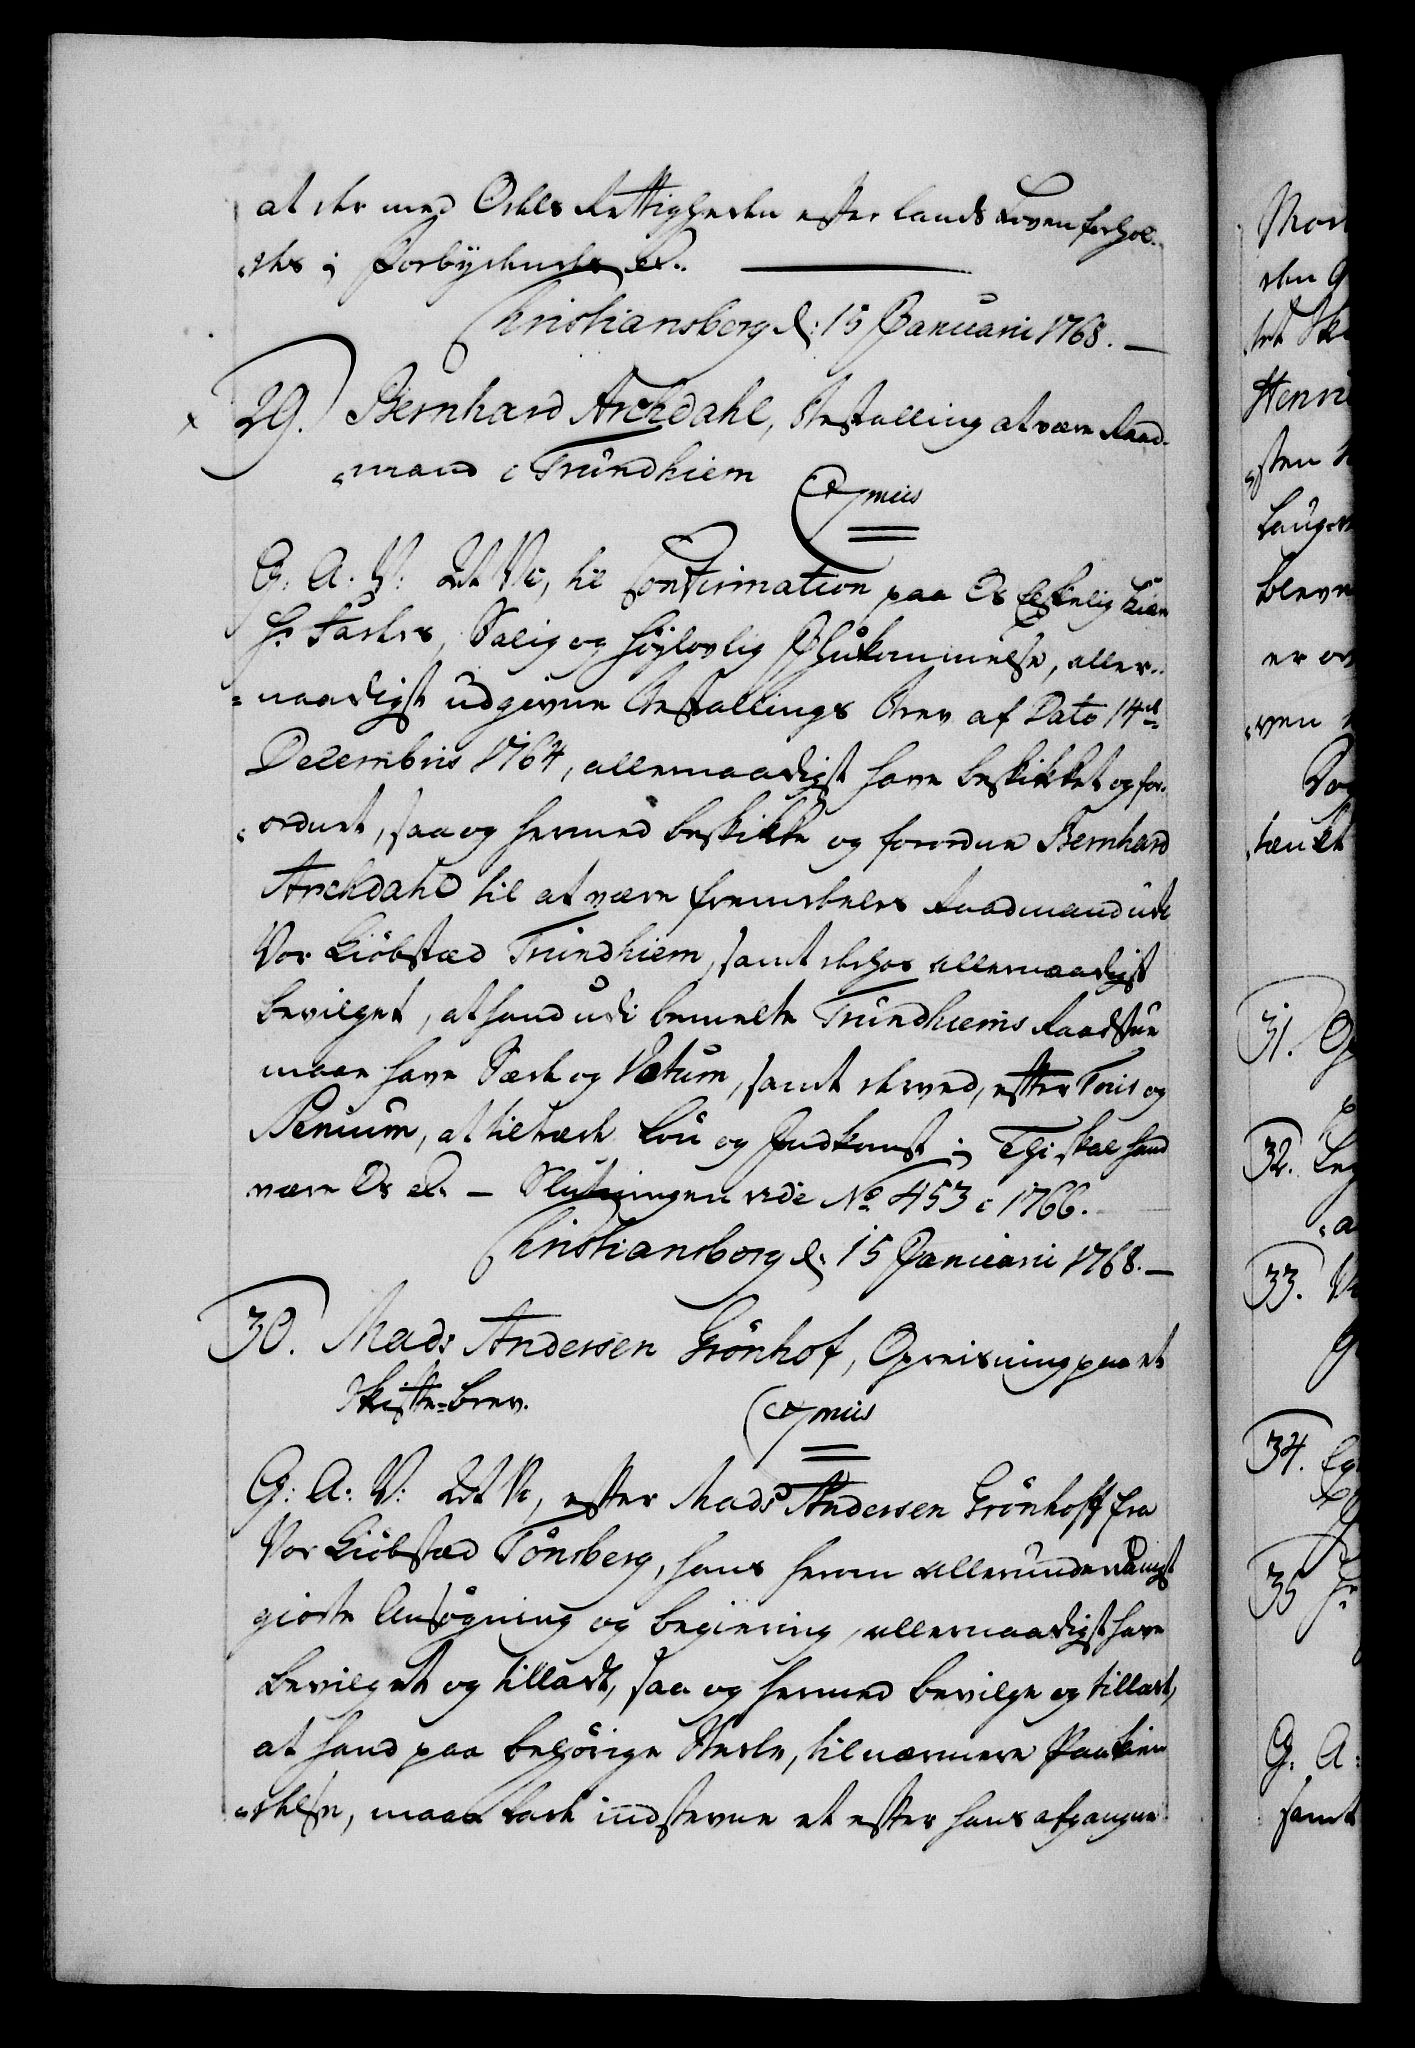 at der med Odels Rettigheden efter Lands Loven forhol-
des; Forbydendes etc.
Christiansborg d: 15 Januarii 1768. —
29. Bernhard Archdahl, Bestalling at være Raad-
mand i Trundhiem
Gratis
G. A. V: Vi, til Confirmation paa Os Elskelig Kiære
Hr. Faders, Salig og Høylovlig Ihukommelse, aller-
naadigst udgivne Bestallings Brev af Dato 14de
Decembris 1764, allernaadigst have beskikket og for-
ordnet, saa og hermed beskikke og forordne Bernhard
Archdahl til at være fremdeeles Raadmand udi
Vor Kiöbstæd Trundhiem, samt derhos allernaadigst
bevilget, at hand udi bemelte Trundhiems Raadstue
maae have Sæde og Votum, samt derved, efter Tour og
Senium, at tiltræde Løn og Indkomst; Thi skal hand
være Os etc. — Slutningen vide No 453 i 1766.
Christiansborg d. 15 Januarii 1768. —
30. Mads Andersen Grönhof, Opreisning paa et
Skifte-brev.
Gratis
G: A: V: Vi, efter Mads Andersen Grönhoff fra
Vor Kiöbstæd Tönsberg, hans herom allerunderdanigst
giorte Ansögning og begiering, allernaadigst have
bevilget og tilladt, saa og hermed bevilge og tillade,
at hand paa behörige Stæder, til nærmere Paakien-
delse, maae lade indstevne et efter hans afgangne